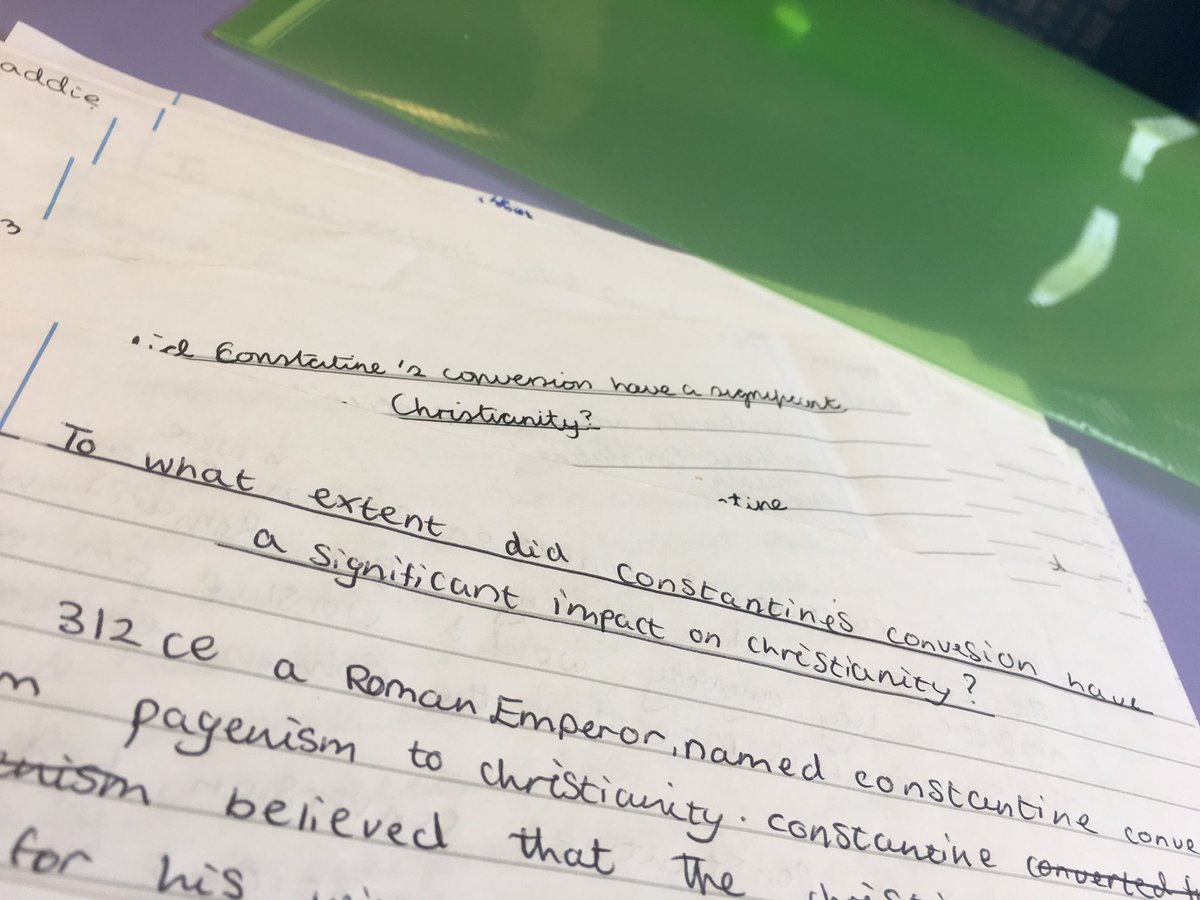 addie
3
Constatine's conversion have a significant
Christianity?
tine
To what extent did constantine's convesion have
a significant impact on christianity?
312 ce a Roman Emperor, named constantine conve
m pagenism to christianity. constantine converted
enism believed that the christi
for his